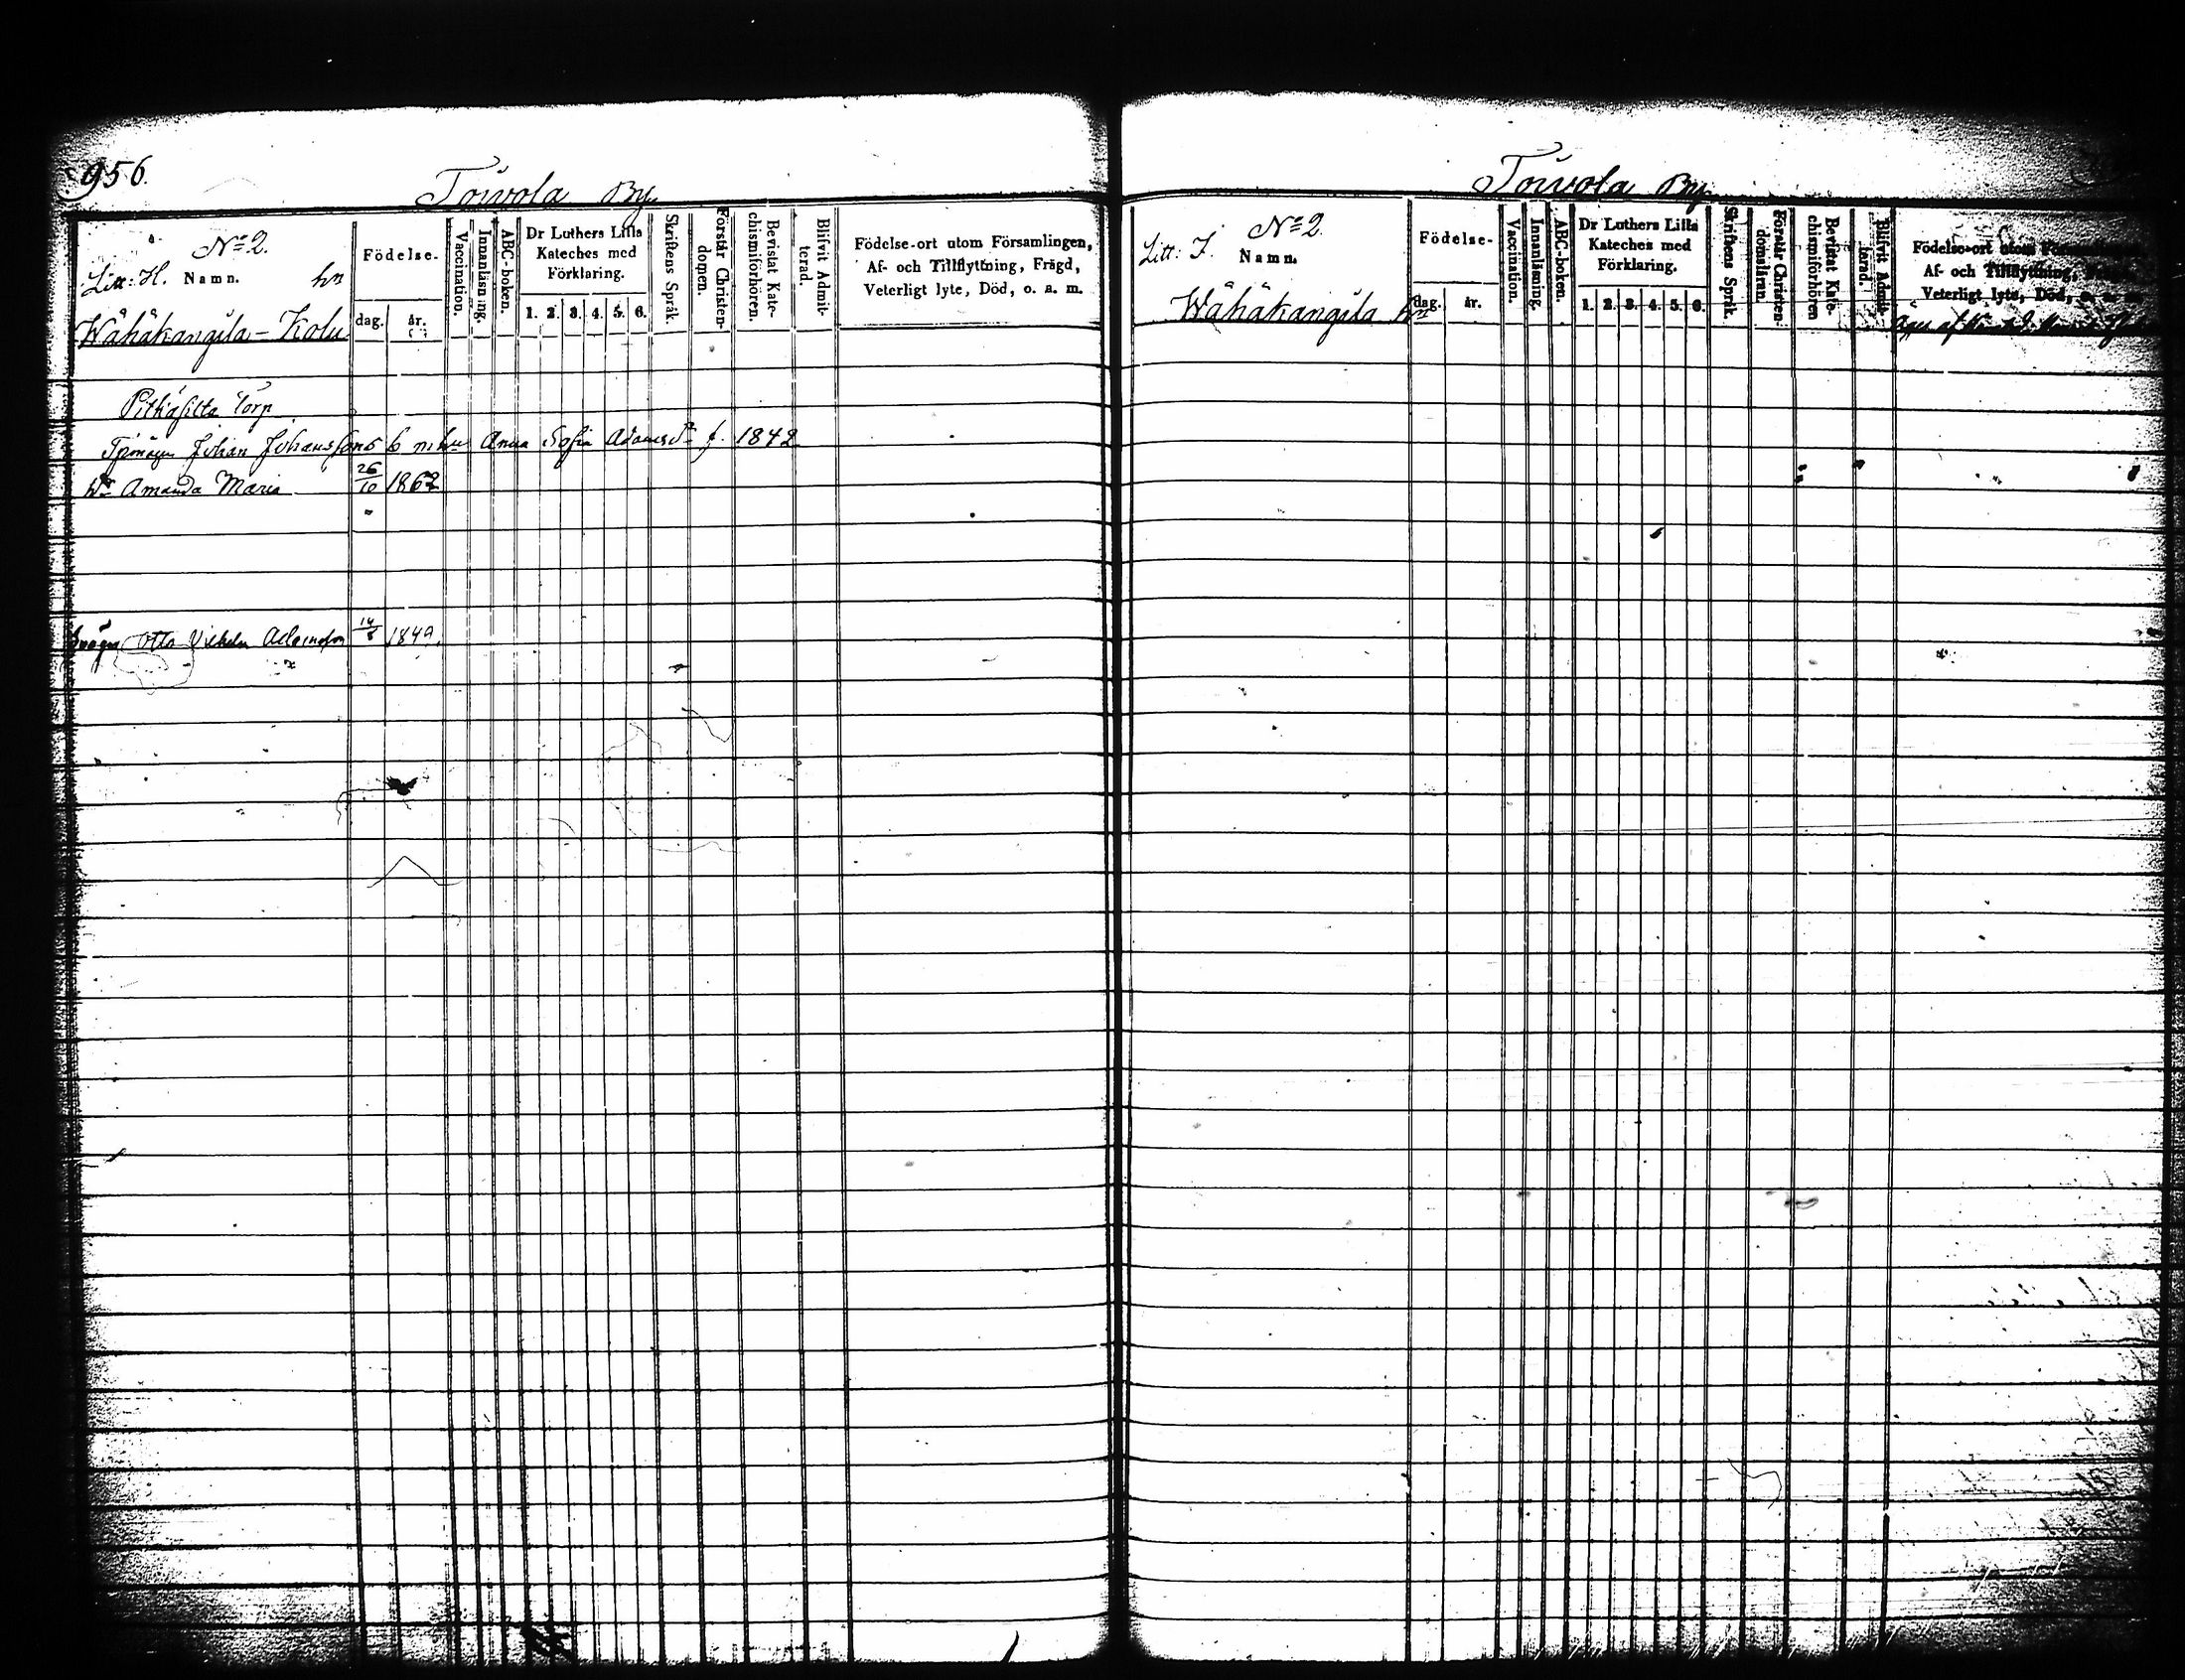 956.
Toivola By.
No 2.
Litt: H. Namn. hn
Wähäkangila - Kolu
Födelse-
dag. år.
Vaccination.
Innanläsning.
ABC-boken.
Dr Luthers Lilla
Kateches med
Förklaring.
1. 2. 3. 4. 5. 6.
Skriftens Språk.
Förstår Christen-
domen.
Bevistat Kate-
chismiförhören.
Blifvit Admit-
terad.
Födelse-ort utom Församlingen,
Af- och Tillflyttning, Frägd,
Veterligt lyte, Död, o. s. m.
Torp
Johan Johanssons Anna Sofia f. 1842
Amanda Maria 26/10 1862
Otto Vilhelm Adamsson 14/8 1849.
Toivola By
No 2.
Litt: J. Namn.
Wähäkangila hn
Födelse-
dag. år.
Vaccination.
Innanläsning.
ABC-boken.
Dr Luthers Lilla
Kateches med
Förklaring.
1. 2. 3. 4. 5. 6.
Skriftens Språk.
Förstår Christen-
domsläran.
Bevistat Kate-
chismiförhören
Blifvit Admit-
terad.
Födelse-ort utom
Af- och Tillflyttning,
Veterligt lyte, Död,